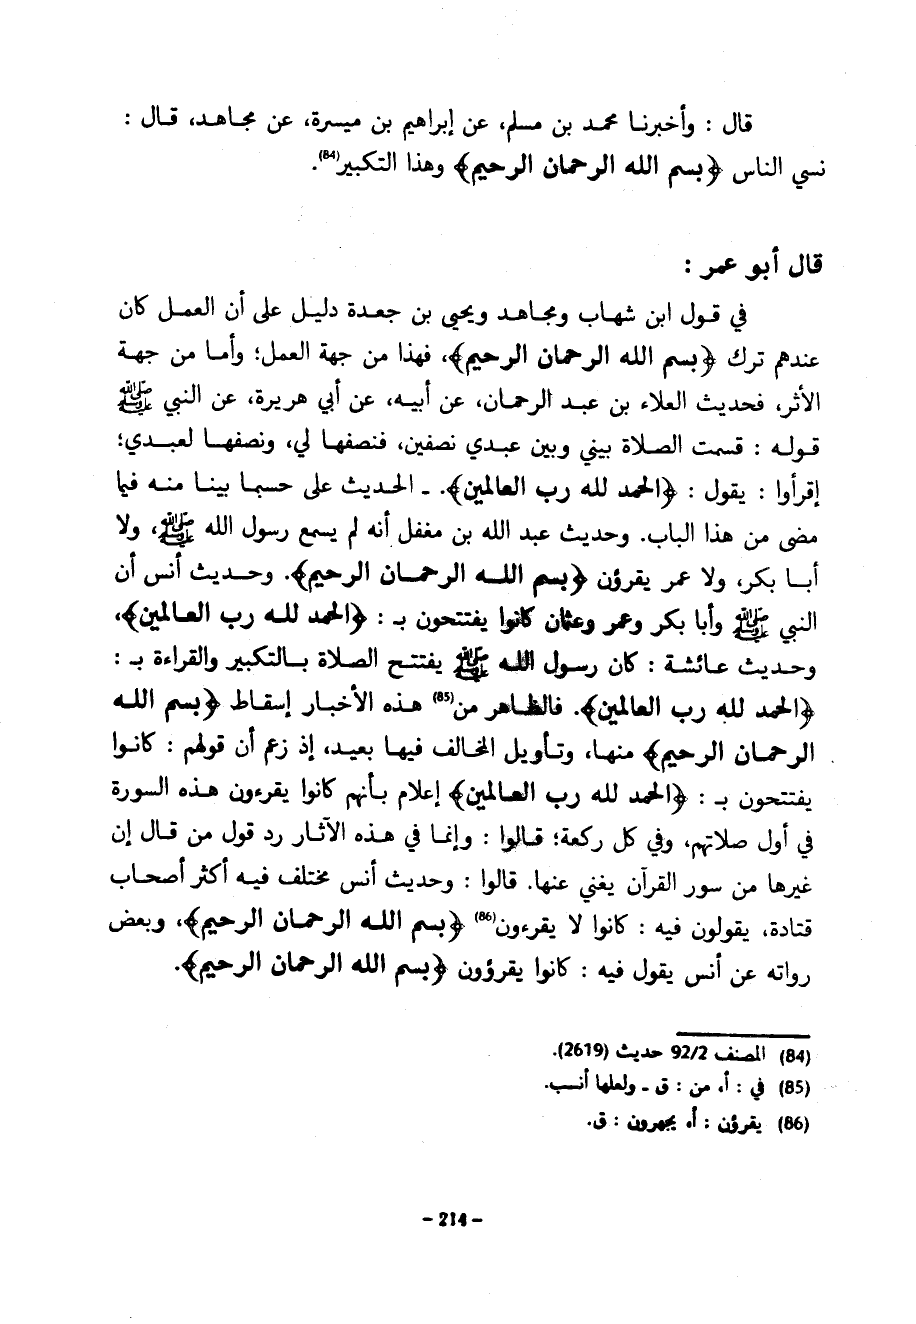 قال : وأخبرنا محمد بن مسلم، عن إبراهيم بن ميسرة، عن مجاهد، قال :
نسي الناس ﴿بسم الله الرحمان الرحيم﴾ وهذا التكبير(84).
قال أبو عمر :
في قول ابن شهاب ومجاهد ويحيى بن جعدة دليل على أن العمل كان
عندهم ترك ﴿بسم الله الرحمان الرحيم﴾، فهذا من جهة العمل؛ وأما من جهة
الأثر، فحديث العلاء بن عبد الرحمان، عن أبيه، عن أبي هريرة، عن النبي ﷺ
قوله : قسمت الصلاة بيني وبين عبدي نصفين، فنصفها لي، ونصفها لعبدي؛
إقرأوا : يقول : ﴿الحمد لله رب العالمين﴾. ـ الحديث على حسبما بينا منه فيما
مضى من هذا الباب. وحديث عبد الله بن مغفل أنه لم يسمع رسول الله ﷺ، ولا
أبا بكر، ولا عمر يقرؤن ﴿بسم اللـه الرحمان الرحيم﴾. وحديث أنس أن
النبي ﷺ وأبا بكر وعمر وعثمان كانوا يفتتحون بـ : ﴿الحمد لله رب العالمين﴾،
وحديث عائشة : كان رسول اللـه ﷺ يفتتح الصلاة بالتكبير والقراءة بـ :
﴿الحمد لله رب العالمين﴾. فالظاهر من(85) هذه الأخبار إسقاط ﴿بسم اللـه
الرحمان الرحيم﴾ منها، وتأويل المخالف فيها بعيد، إذ زعم أن قولهم : كانوا
يفتتحون بـ : ﴿الحمد لله رب العالمين﴾ إعلام بأنهم كانوا يقرءون هذه السورة
في أول صلاتهم، وفي كل ركعة؛ قالوا : وإنما في هذه الآثار رد قول من قال إن
غيرها من سور القرآن يغني عنها. قالوا : وحديث أنس مختلف فيه أكثر أصحاب
قتادة، يقولون فيه : كانوا لا يقرءون(86) ﴿بسم اللـه الرحمان الرحيم﴾، وبعض
رواته عن أنس يقول فيه : كانوا يقرؤون ﴿بسم الله الرحمان الرحيم﴾.
(84) المصنف 92/2 حديث (2619).
(85) في : أ، من : ق ـ ولعلها أنسب.
(86) يقرؤن : أ، يجهرون : ق.
- 214 -